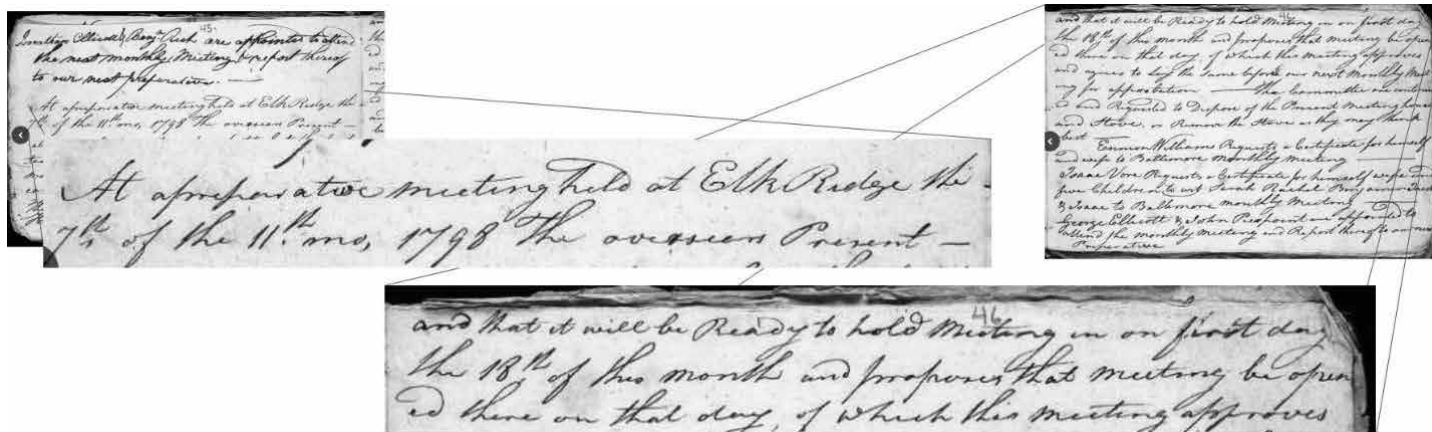 45.
Jonathan Ellicott & Benjn Rich are appointed to attend
the next monthly Meeting & report thereof
to our next preparative. —
At a preparative meeting held at Elk Ridge the
7th of the 11th mo, 1798 The overseers Present —
At a preparative meeting held at Elk Ridge the
7th of the 11th mo, 1798 The overseers Present —
46
and that it will be Ready to hold Meeting in on first day
the 18th of this month and proposes that meeting be open
ed there on that day, of which this meeting approves
and agrees to lay the Same before our next monthly Meet
ing for approbation — The Committee are continu
ed and Requested to Dispose of the Present Meeting house
and Stove, or Remove the Stove as they may think
best
Williams Requests a Certificate for himself
and wife to Baltimore monthly meeting
Isaac Vore Requests a Certificate for himself wife and
five Children to wit Sarah Rachel Benjamin
& Isaac to Baltimore monthly Meeting
George Ellicott & John Pierpoint are appointed to
attend the monthly meeting and Report thereof to our next
Preparative
46
and that it will be Ready to hold Meeting in on first day
the 18th of this month and proposes that meeting be open
ed there on that day, of which this meeting approves